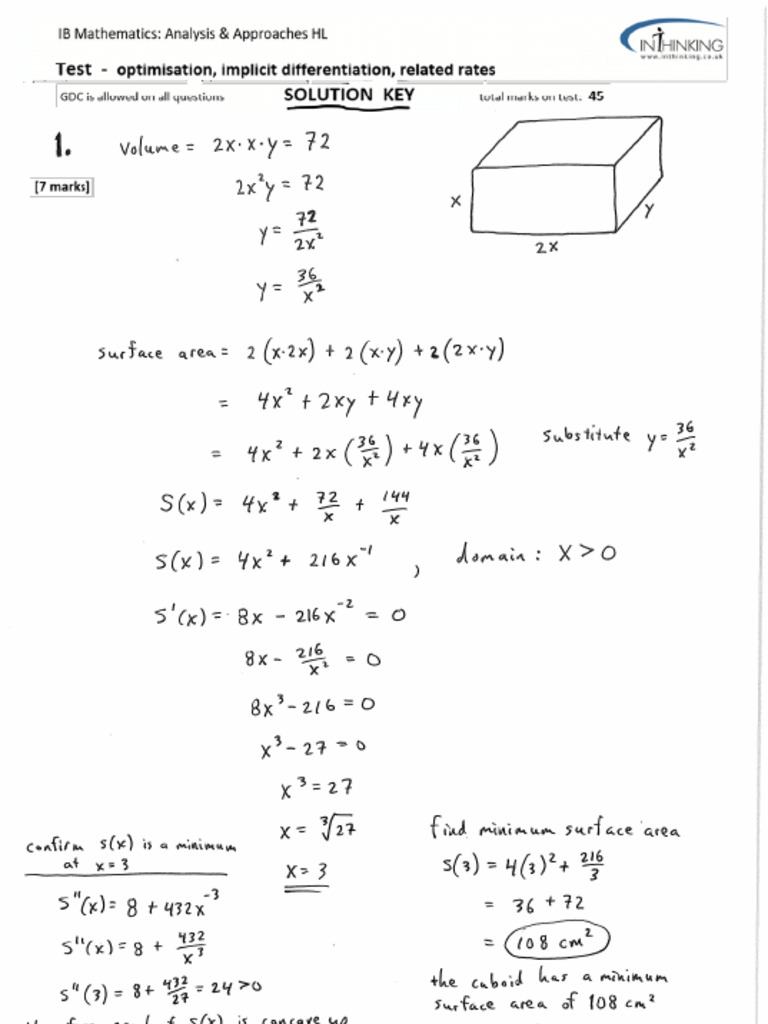 IB Mathematics: Analysis & Approaches HL
INTHINKING
www.inthinking.co.uk
Test - optimisation, implicit differentiation, related rates
GDC is allowed on all questions SOLUTION KEY total marks on test: 45
1. Volume = 2x·x·y = 72
[7 marks] 2x²y = 72
y = 72/2x²
y = 36/x²
x
y
2x
surface area = 2(x·2x) + 2(x·y) + 2(2x·y)
= 4x² + 2xy + 4xy
= 4x² + 2x(36/x²) + 4x(36/x²) substitute y = 36/x²
S(x) = 4x² + 72/x + 144/x
S(x) = 4x² + 216x⁻¹ , domain: x > 0
S'(x) = 8x - 216x⁻² = 0
8x - 216/x² = 0
8x³ - 216 = 0
x³ - 27 = 0
x³ = 27
x = ∛27
x = 3
confirm S(x) is a minimum
at x = 3
S''(x) = 8 + 432x⁻³
S''(x) = 8 + 432/x³
S''(3) = 8 + 432/27 = 24 > 0
find minimum surface area
S(3) = 4(3)² + 216/3
= 36 + 72
= 108 cm²
the cuboid has a minimum
surface area of 108 cm²
S(x) is concave up